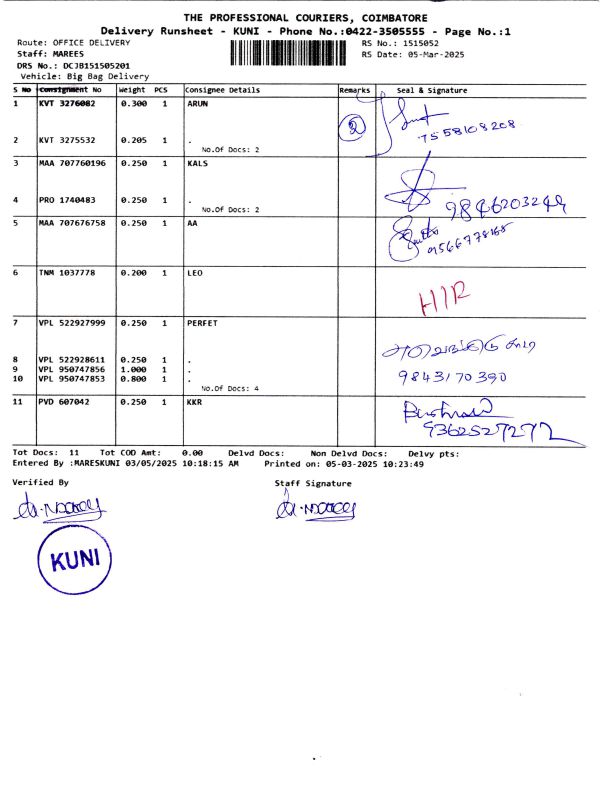 THE PROFESSIONAL COURIERS, COIMBATORE
Delivery Runsheet - KUNI - Phone No.:0422-3505555 - Page No.:1
Route: OFFICE DELIVERY RS No.: 1515052
Staff: MAREES RS Date: 05-Mar-2025
DRS No.: DCJB151505201
Vehicle: Big Bag Delivery
S No Consignment No Weight PCS Consignee Details Remarks Seal & Signature
1 KVT 3276082 0.300 1 ARUN
2 7558108208
2 KVT 3275532 0.205 1 .
No.Of Docs: 2
3 MAA 707760196 0.250 1 KALS
4 PRO 1740483 0.250 1 .
No.Of Docs: 2
9846203249
5 MAA 707676758 0.250 1 AA
9566778168
6 TNM 1037778 0.200 1 LEO
HIR
7 VPL 522927999 0.250 1 PERFET
8 VPL 522928611 0.250 1 .
9 VPL 950747856 1.000 1 .
10 VPL 950747853 0.800 1 . 9843170390
No.Of Docs: 4
11 PVD 607042 0.250 1 KKR
9362527272
Tot Docs: 11 Tot COD Amt: 0.00 Delvd Docs: Non Delvd Docs: Delvy pts:
Entered By :MARESKUNI 03/05/2025 10:18:15 AM Printed on: 05-03-2025 10:23:49
Verified By Staff Signature
KUNI